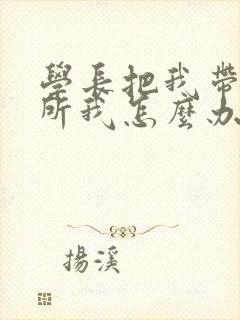 學長把我帶
所我怎麼办
揚溪